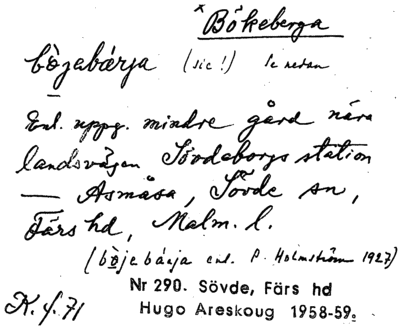 * Bökeberga
bòjebárja (sic!) se nedan
Enl. uppg. mindre gård nära
landsvägen Sövdeborgs station
— Asmåsa, Sövde sn,
Färs hd, Malm. l.
(bòjebárja enl. P. Holmström 1927)
Nr 290. Sövde, Färs hd
K. f. 71
Hugo Areskoug 1958-59.